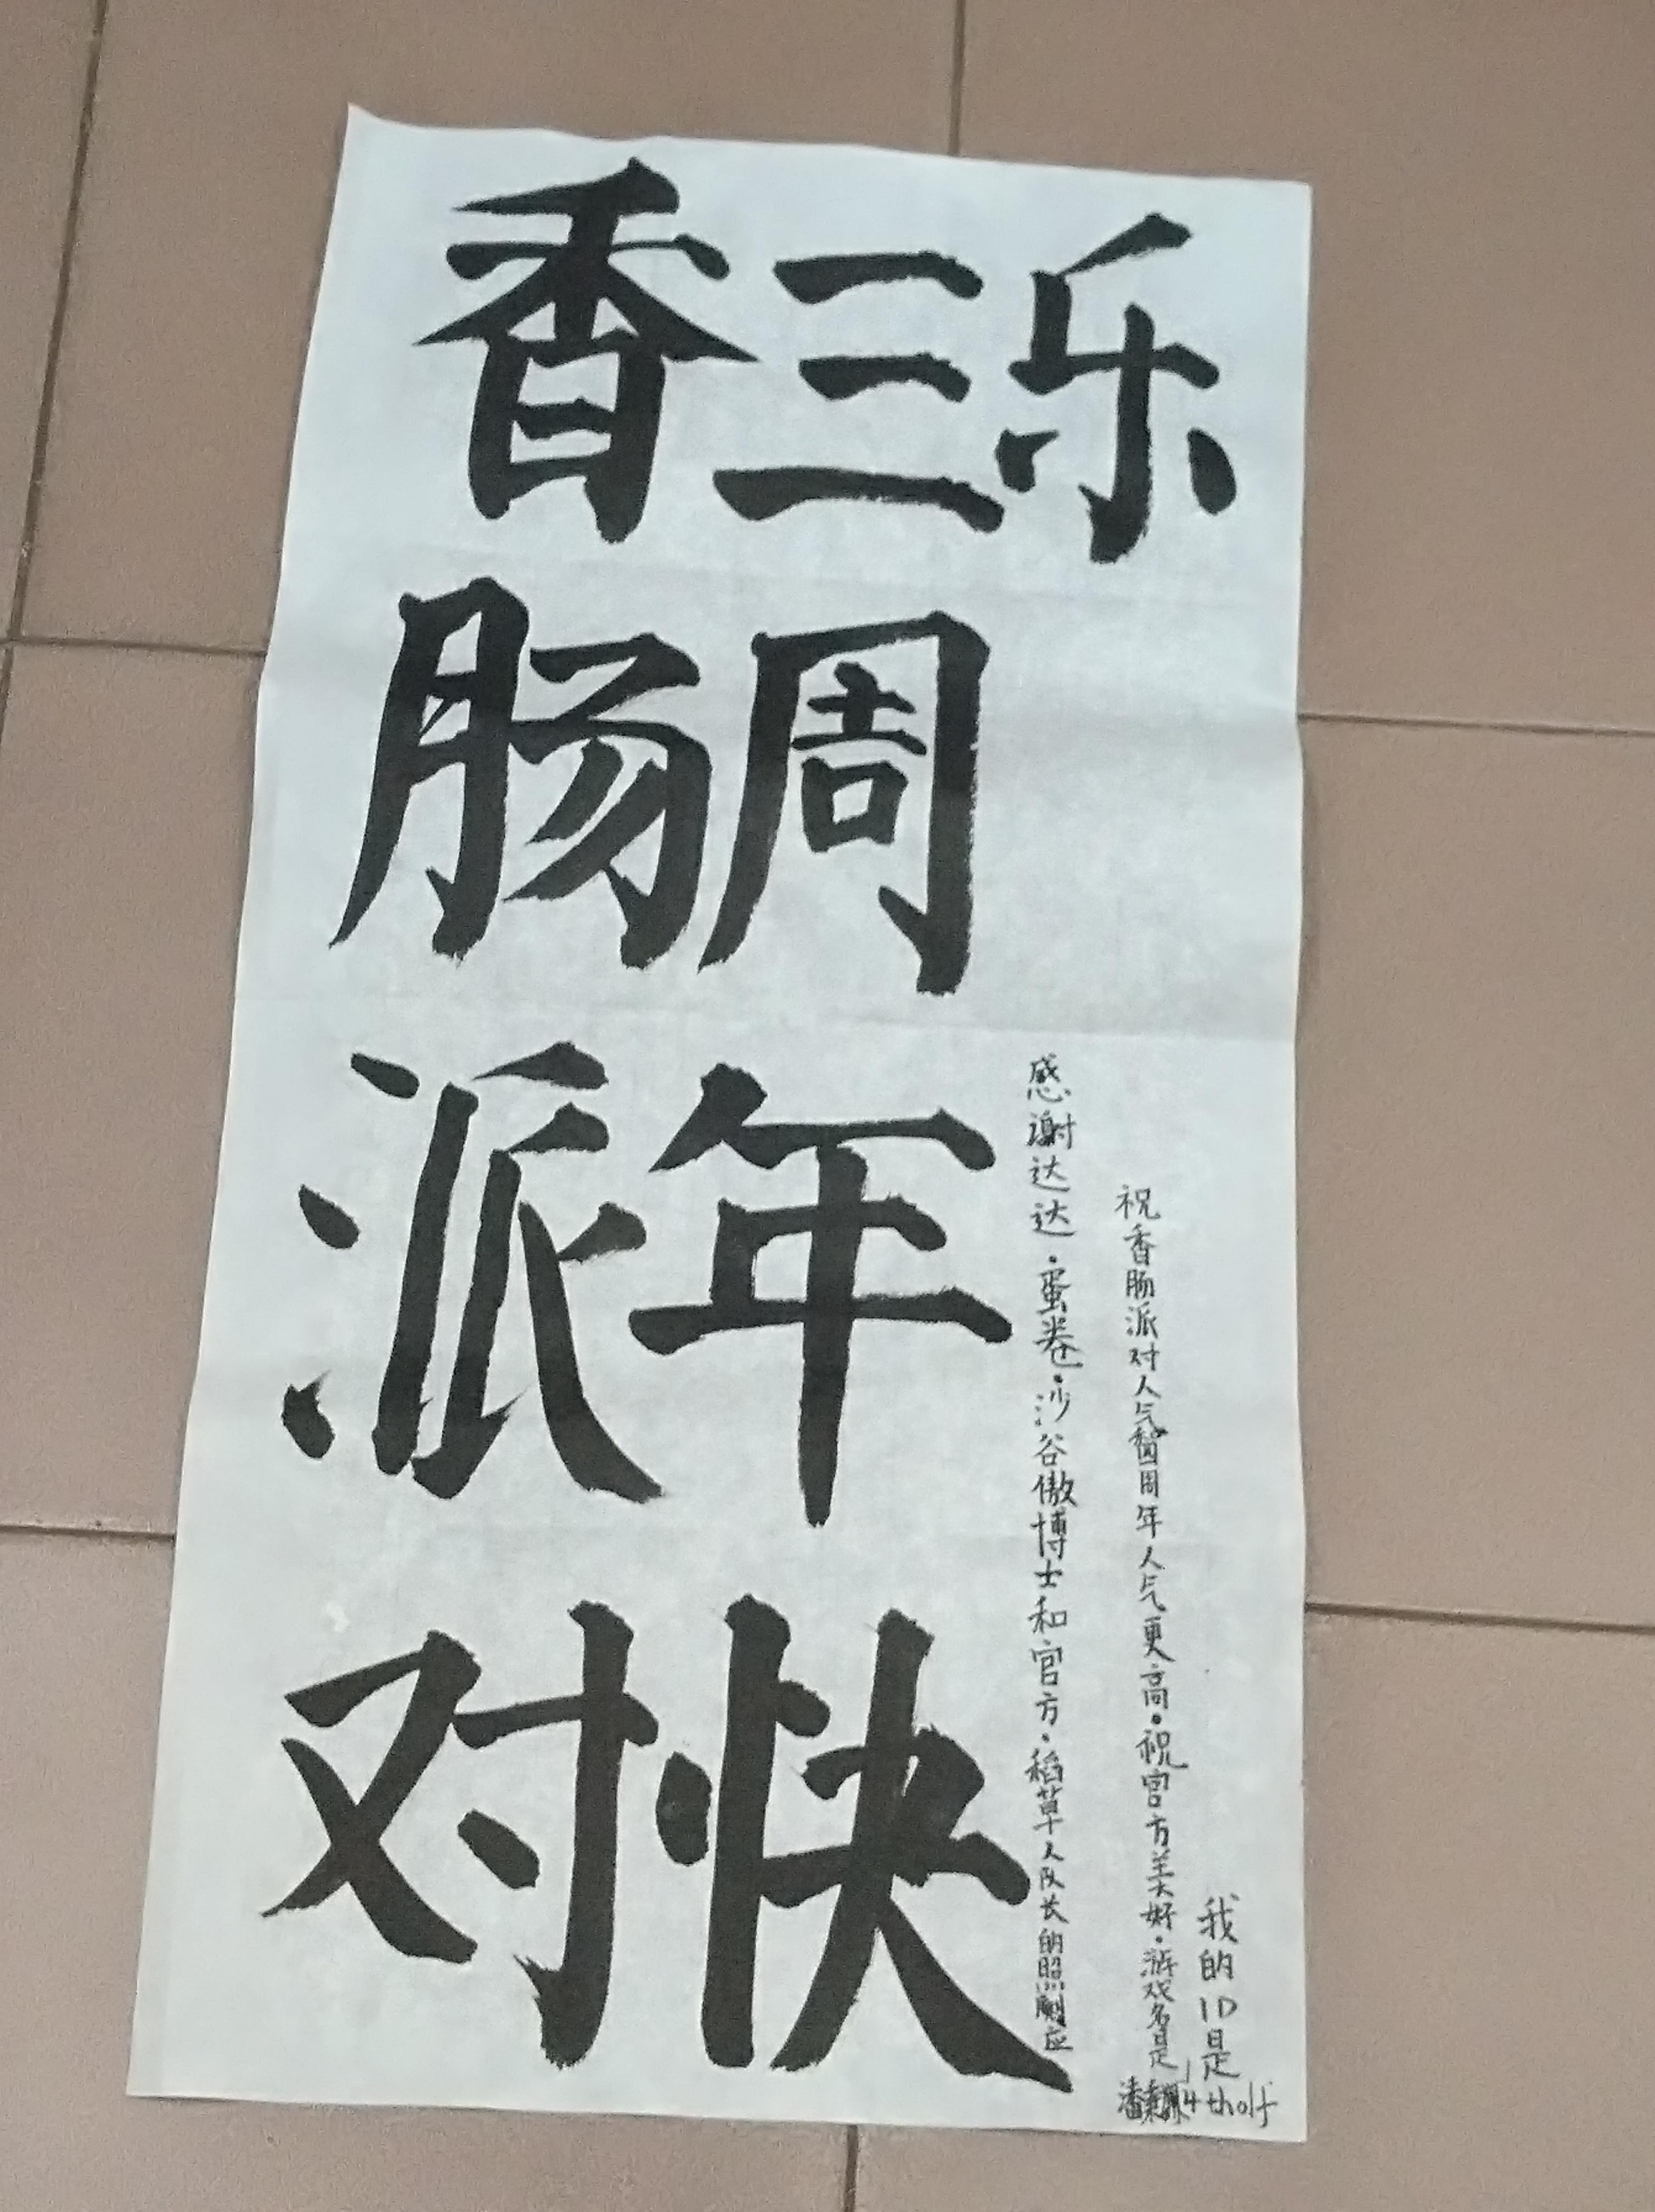 香肠派对
三周年快
乐
感谢达达·蛋卷·沙谷傲博士和官方·稻草人队长的照应
祝香肠派对人气周年人气更高·祝官方美好·游戏名是潘
我的ID是